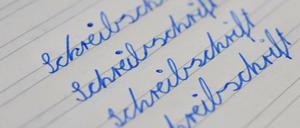 Schreibschrift
Schreibschrift
Schreibschrift
reibschrift